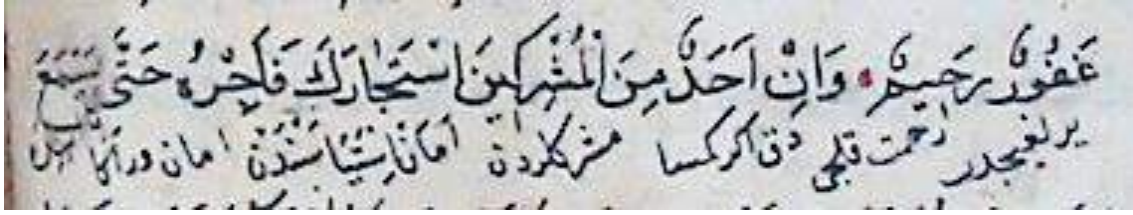 غَفُورٌ رَحِيمٌ وَاِنْ اَحَدٌ مِنَ الْمُشْرِكِينَ اسْتَجَارَكَ فَاَجِرْهُ حَتَّى يَسْمَعَ
يرلغيجدر رحمت قلجى دق اكر كمسا مشركلردن امان استيا سندن امان ور